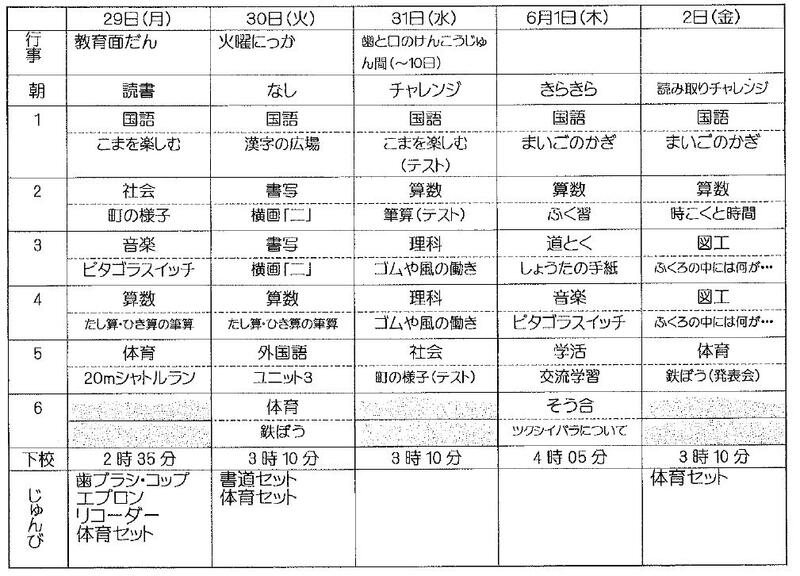 29日(月) 30日(火) 31日(水) 6月1日(木) 2日(金)
行事 教育面だん 火曜にっか 歯と口のけんこうじゅ
ん間(～10日)
朝 読書 なし チャレンジ きらきら 読み取りチャレンジ
1 国語 国語 国語 国語 国語
こまを楽しむ 漢字の広場 こまを楽しむ まいごのかぎ まいごのかぎ
(テスト)
2 社会 書写 算数 算数 算数
町の様子 横画「二」 筆算(テスト) ふく習 時こくと時間
3 音楽 書写 理科 道とく 図工
ピタゴラスイッチ 横画「二」 ゴムや風の働き しょうたの手紙 ふくろの中には何が…
4 算数 算数 理科 音楽 図工
たし算・ひき算の筆算 たし算・ひき算の筆算 ゴムや風の働き ピタゴラスイッチ ふくろの中には何が…
5 体育 外国語 社会 学活 体育
20mシャトルラン ユニット3 町の様子(テスト) 交流学習 鉄ぼう(発表会)
6 体育 そう合
鉄ぼう ツクシイバラについて
下校 2時35分 3時10分 3時10分 4時05分 3時10分
じゅんび 歯ブラシ・コップ 書道セット 体育セット
エプロン 体育セット
リコーダー
体育セット